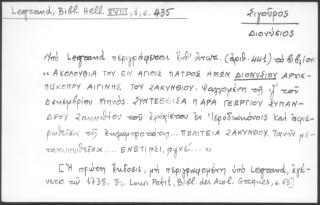 Legrand, Bibl. Hell. XVIII, i, σ. 435
Σιγοῦρος
Διονύσιος
Ὑπὸ Legrand περιγράφεται ἐνθ' ἀνωτ. (ἀριθ. 441) τὸ βιβλίον.
"ΑΚΟΛΟΥΘΙΑ ΤΟΥ ΕΝ ΑΓΙΟΙΣ ΠΑΤΡΟΣ ΗΜΩΝ ΔΙΟΝΥΣΙΟΥ ΑΡΧΙΕ-
ΠΙΣΚΟΠΟΥ ΑΙΓΙΝΗΣ ΤΟΥ ΖΑΚΥΝΘΙΟΥ. Ψαλλομένη τῇ ιζ' τοῦ
Δεκεμβρίου Μηνός. ΣΥΝΤΕΘΕΙΣΑ ΠΑΡΑ ΓΕΩΡΓΙΟΥ ΣΥΠΑΝ-
ΔΡΟΥ Ζακυνθίου τοῦ ἐν Ἱεροδιακόνοις καὶ ἀφιε-
ρωθεῖσα τῇ ἐκλαμπροτάτῃ... ΠΟΛΙΤΕΙΑ ΖΑΚΥΝΘΟΥ. με-
τατυπωθεῖσα... ΕΝΕΤΙΗΣΙ, ..."
[Ἡ πρώτη ἔκδοσις, μὴ περιγραφομένη ὑπὸ Legrand, ἐγέ-
νετο τῷ 1738. Βλ. Louis Petit, Bibl. des Acol. Grecques, σ. 63]